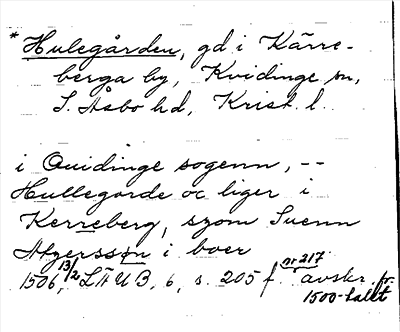 * Hulegården, gd i Kärre-
berga by, Kvidinge sn,
S. Åsbo hd, Krist. l.
i Quidinge sogenn, --
Hullegorde oc liger i
Kerreberg, szom Suenn
Atzersson i boer
1506 13/2, LÄUB, 6, s. 205 f. nr 217 avskr. fr.
1500-talet